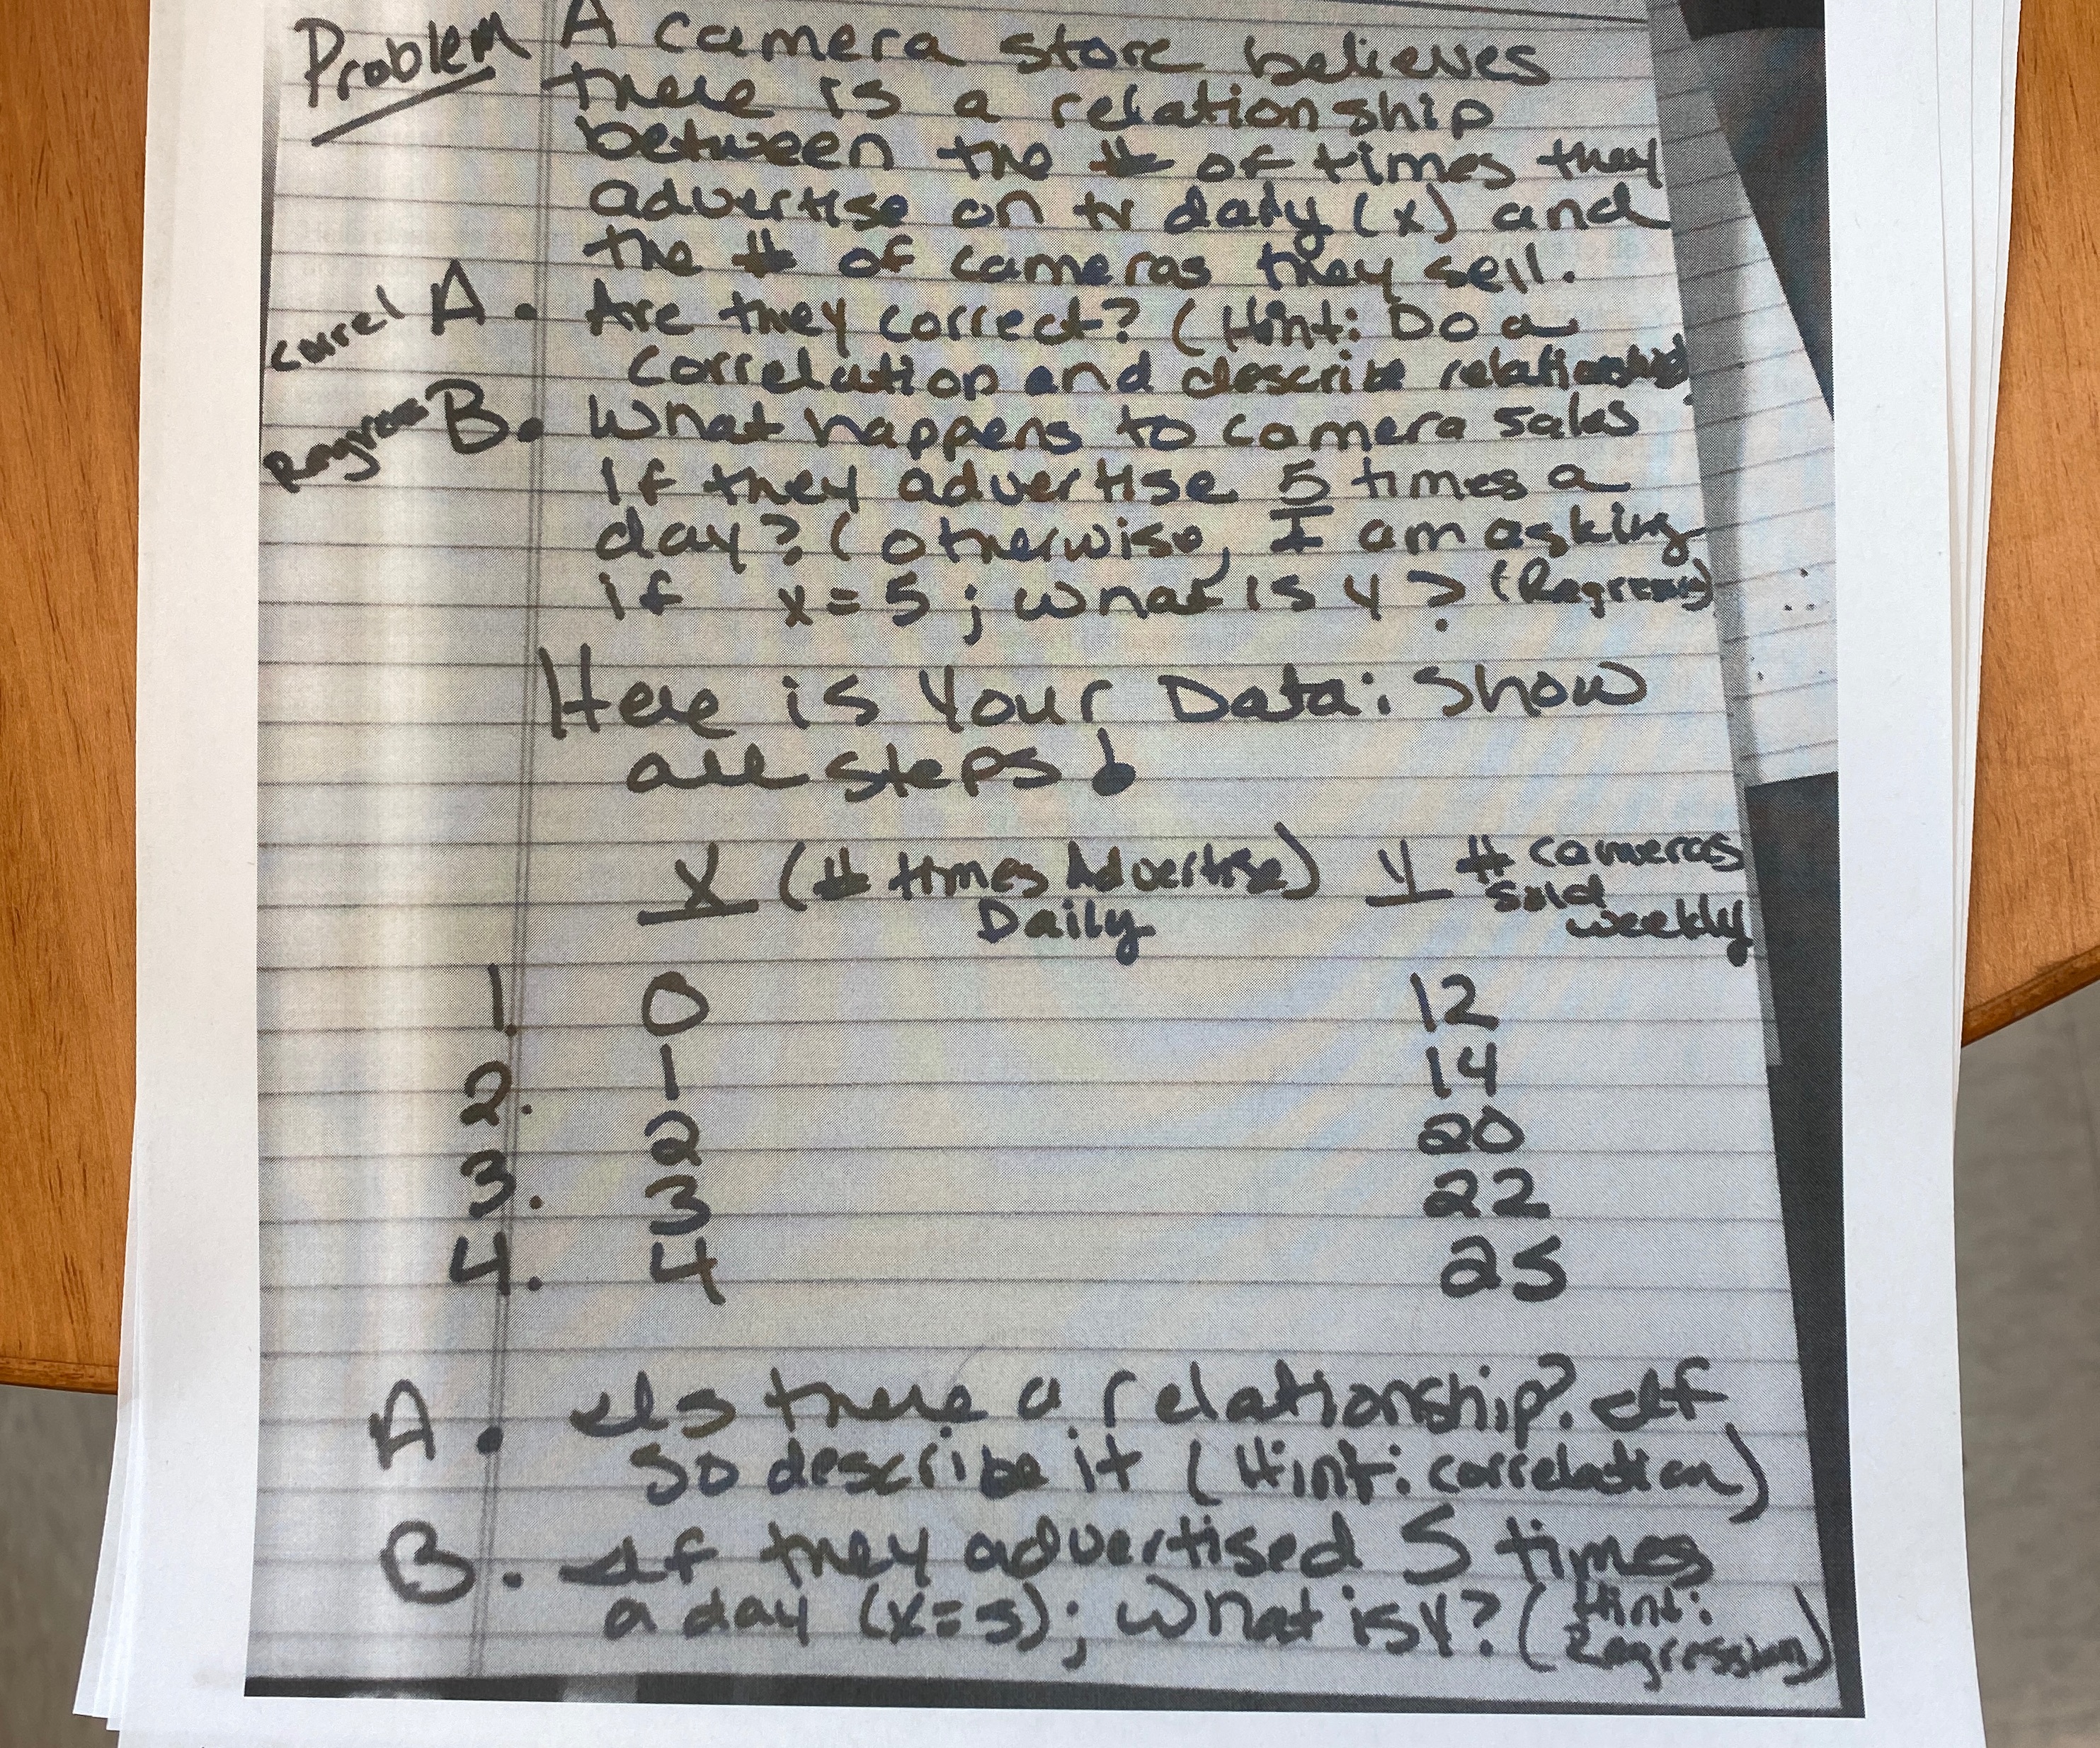 Problem A camera store believes
there is a relationship
between the # of times they
advertise on tv daily (x) and
the # of cameras they sell.
Correl A. Are they correct? (Hint: Do a
correlation and describe relationship)
Regress B. What happens to camera sales
if they advertise 5 times a
day? (otherwise, I am asking
if x = 5; what is y? (Regress)
Here is Your Data: Show
all steps!
X (# times Advertise) Y # cameras
Daily sold
weekly
1. 0 12
2. 1 14
3. 2 20
4. 3 22
4 25
A. Is there a relationship? If
so describe it (Hint: correlation)
B. If they advertised 5 times
a day (x=5); what is Y? (Hint:
Regression)